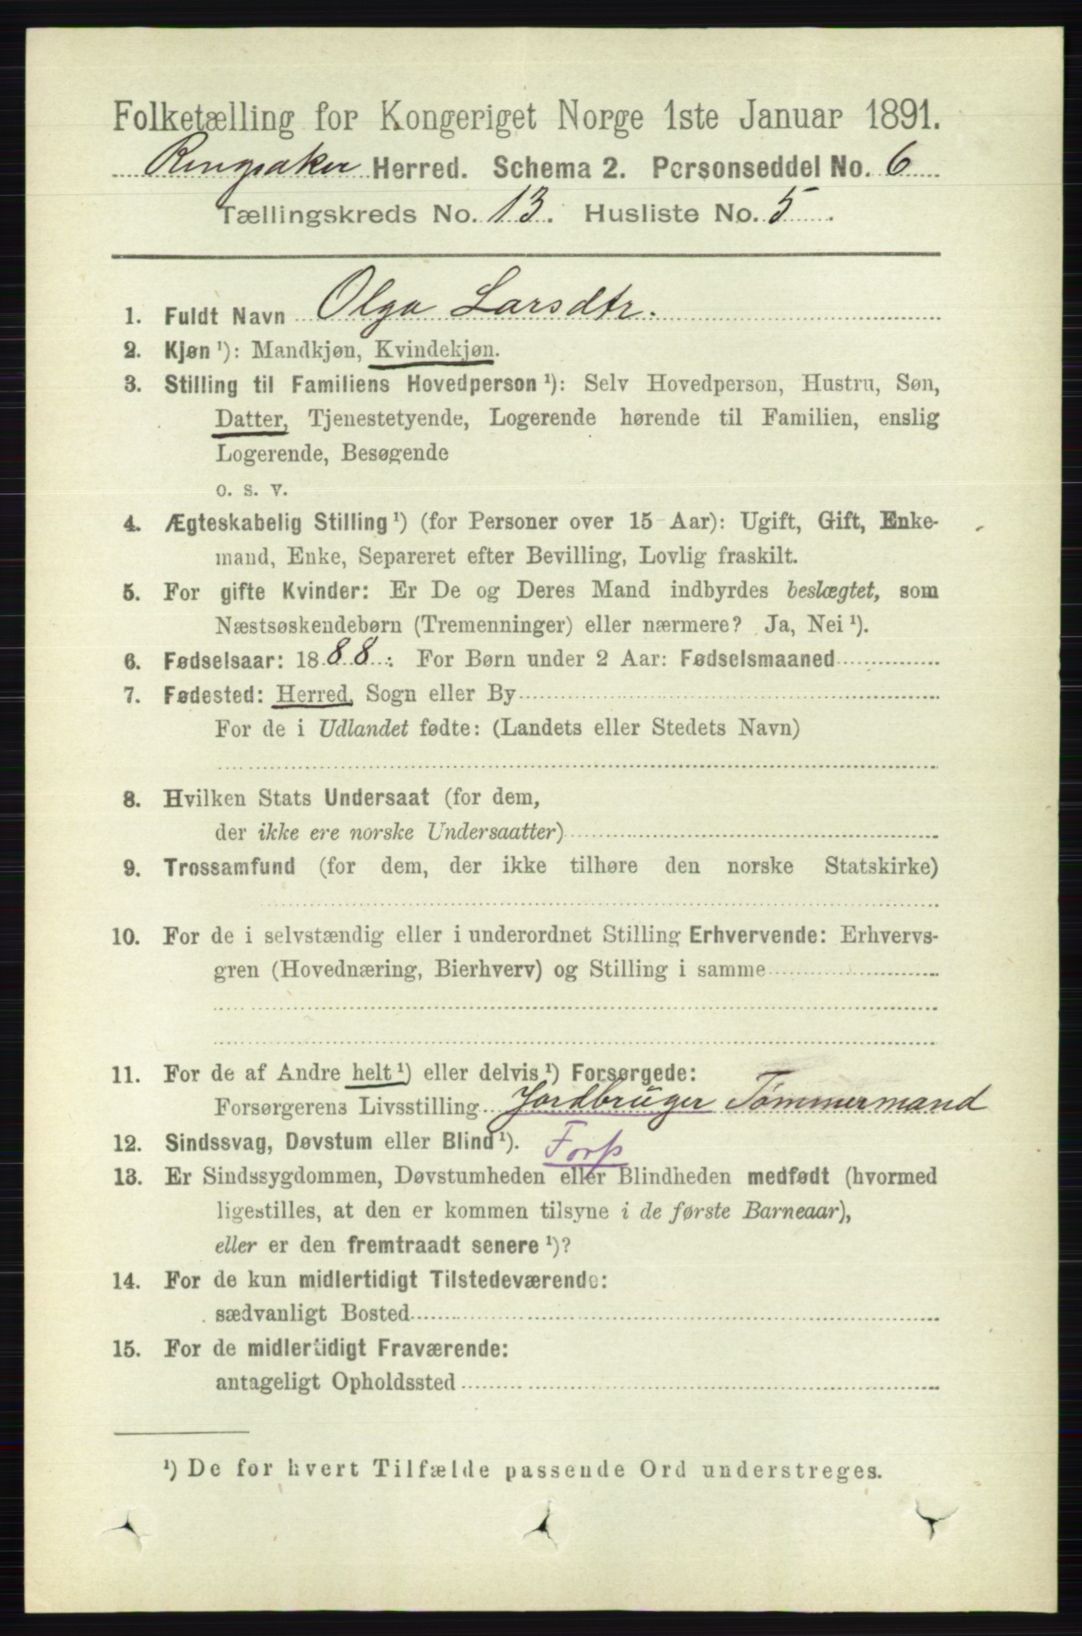 Folketælling for Kongeriget Norge 1ste Januar 1891.
Ringsaker Herred. Schema 2. Personseddel No. 6
Tællingskreds No. 13. Husliste No. 5.
1. Fuldt Navn Olga Larsdtr.
2. Kjøn ¹): Mandkjøn, Kvindekjøn.
3. Stilling til Familiens Hovedperson ¹): Selv Hovedperson, Hustru, Søn,
Datter, Tjenestetyende, Logerende hørende til Familien, enslig
Logerende, Besøgende
o. s. v.
4. Ægteskabelig Stilling ¹) (for Personer over 15 Aar): Ugift, Gift, Enke-
mand, Enke, Separeret efter Bevilling, Lovlig fraskilt.
5. For gifte Kvinder: Er De og Deres Mand indbyrdes beslægtet, som
Næstsøskendebørn (Tremenninger) eller nærmere? Ja, Nei ¹).
6. Fødselsaar: 1888. For Børn under 2 Aar: Fødselsmaaned
7. Fødested: Herred, Sogn eller By
For de i Udlandet fødte: (Landets eller Stedets Navn)
8. Hvilken Stats Undersaat (for dem,
der ikke ere norske Undersaatter)
9. Trossamfund (for dem, der ikke tilhøre den norske Statskirke)
10. For de i selvstændig eller i underordnet Stilling Erhvervende: Erhvervs-
gren (Hovednæring, Bierhverv) og Stilling i samme
11. For de af Andre helt ¹) eller delvis ¹) Forsørgede:
Forsørgerens Livsstilling Jordbruger Tømmermand
12. Sindssvag, Døvstum eller Blind ¹). Forp
13. Er Sindssygdommen, Døvstumheden eller Blindheden medfødt (hvormed
ligestilles, at den er kommen tilsyne i de første Barneaar),
eller er den fremtraadt senere ¹)?
14. For de kun midlertidigt Tilstedeværende:
sædvanligt Bosted
15. For de midlertidigt Fraværende:
antageligt Opholdssted
¹) De for hvert Tilfælde passende Ord understreges.